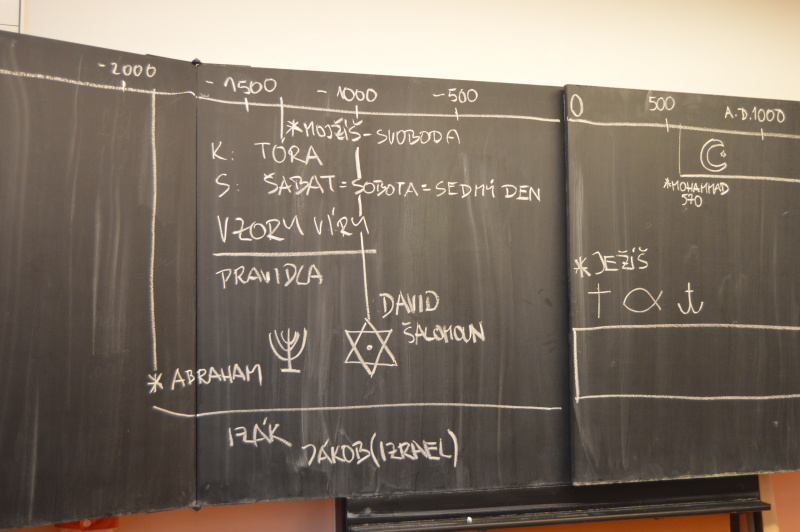 -2000 -1500 -1000 -500 0 500 A.D.1000
*MOJŽÍŠ-SVOBODA
K: TÓRA
S: ŠABAT=SOBOTA=SEDMÝ DEN
VZORY VÍRY
PRAVIDLA
DAVID
ŠALOMOUN
*ABRAHAM
IZÁK JÁKOB(IZRAEL)
*MOHAMMAD
570
*JEŽÍŠ